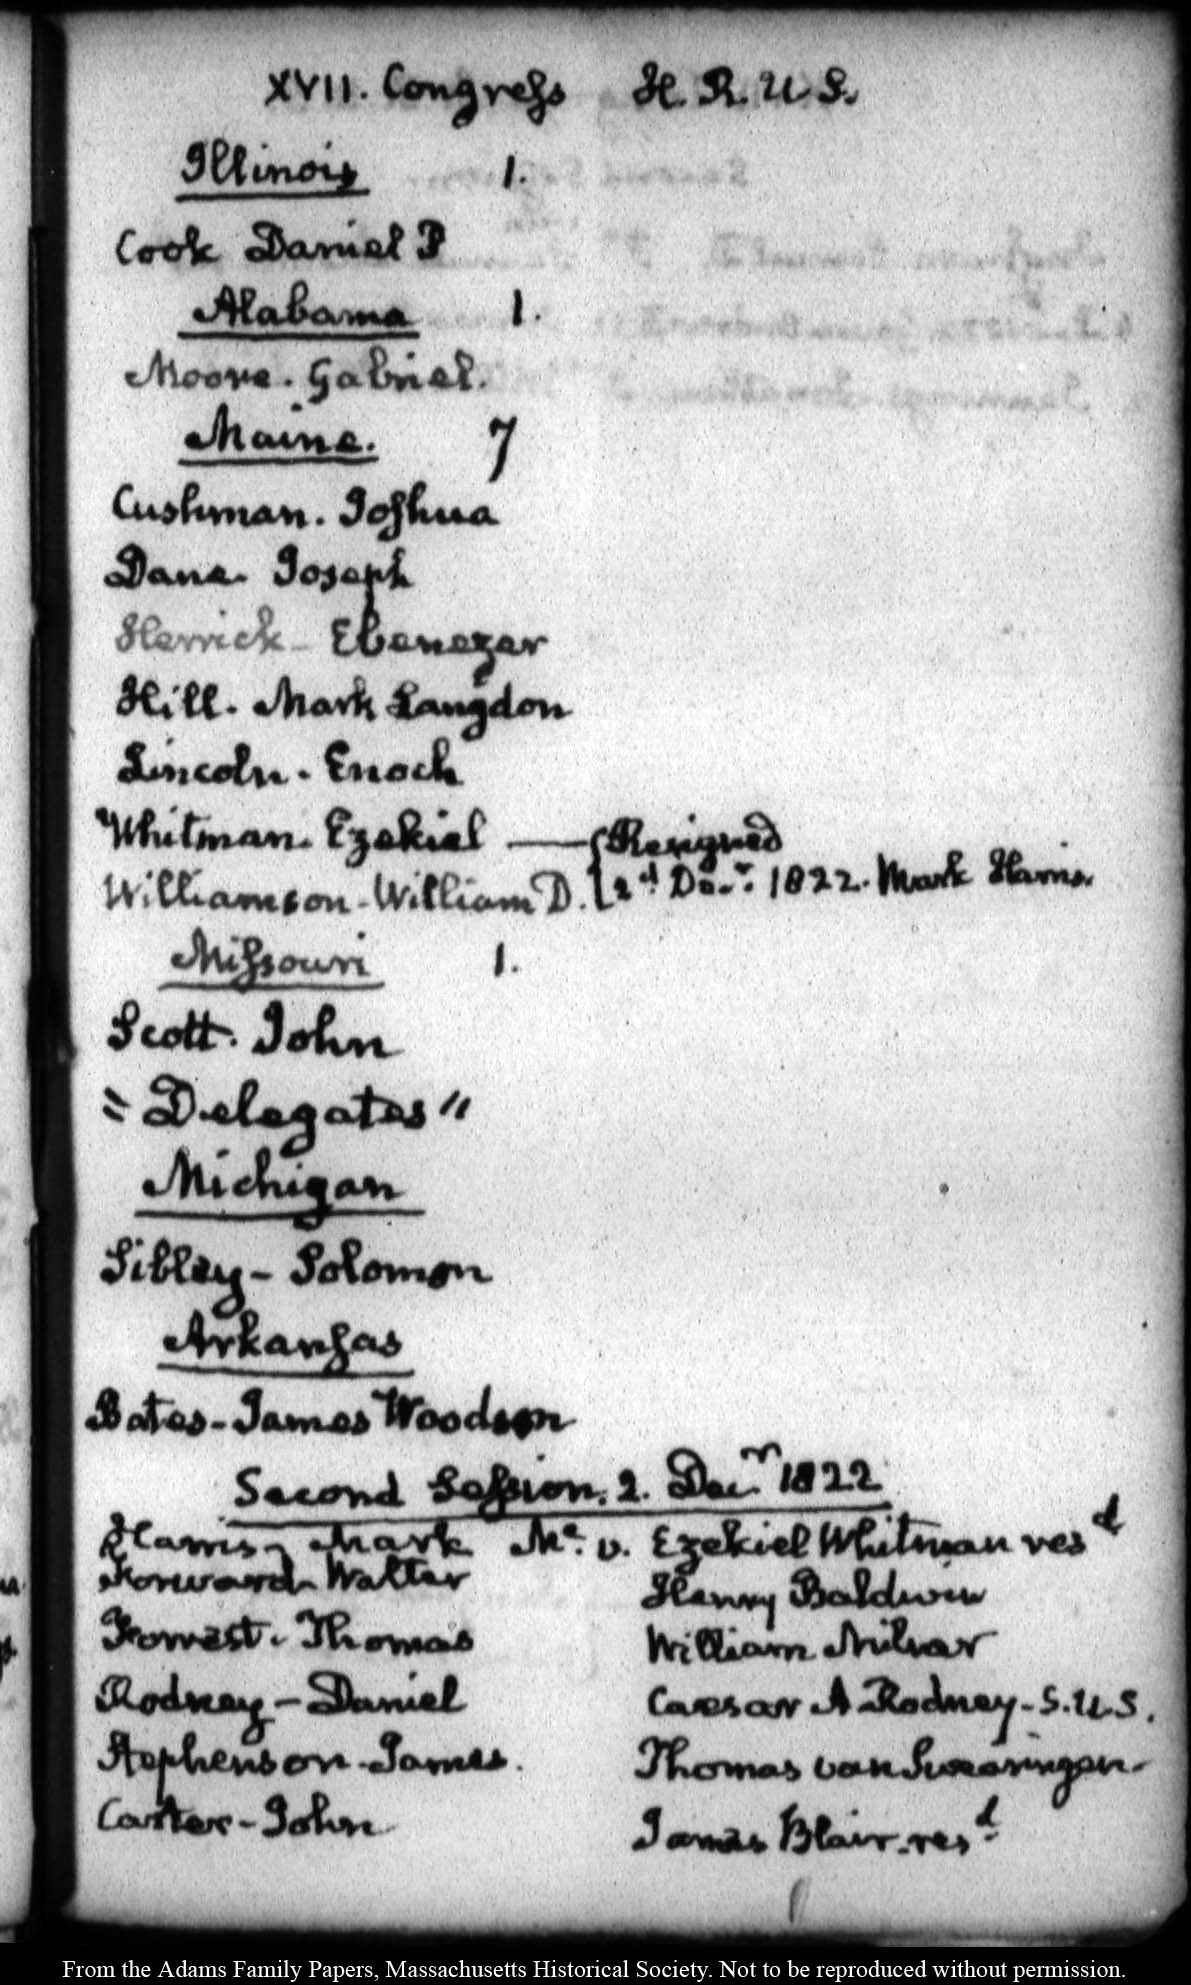 XVII. Congress H. R. U. S.
Illinois 1.
Cook Daniel P
Alabama 1.
Moore. Gabriel.
Maine. 7
Cushman. Joshua
Dane. Joseph
Herrick - Ebenezer
Hill. Mark Langdon
Lincoln. Enoch
Whitman. Ezekiel — Resigned
Williamson - William D. 2d. Decr. 1822. Mark Harris.
Missouri 1.
Scott. John
"Delegates"
Michigan
Sibley - Solomon
Arkansas
Bates - James Woodson
Second Session. 2. Decr 1822
Harris - Mark Me. v. Ezekiel Whitman resd
Forward - Walter Henry Baldwin
Forrest. Thomas William Milnor
Rodney - Daniel Caesar A Rodney - S. U. S.
Stephenson - James. Thomas van Swearingen -
Carter - John James Blair - resd.
From the Adams Family Papers, Massachusetts Historical Society. Not to be reproduced without permission.